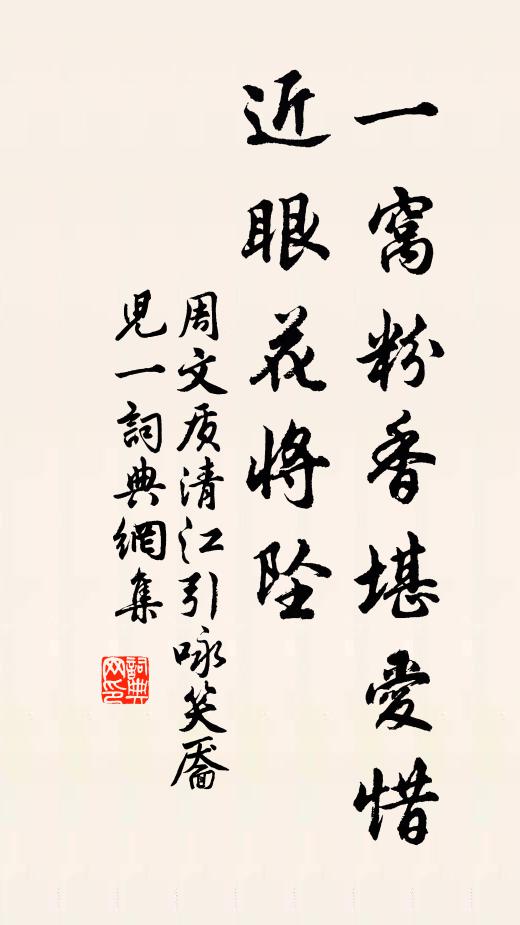 一窝粉香堪愛惜
近眼花将坠
周文质清江引咏笑靥
児一詞典網集
詞典网印